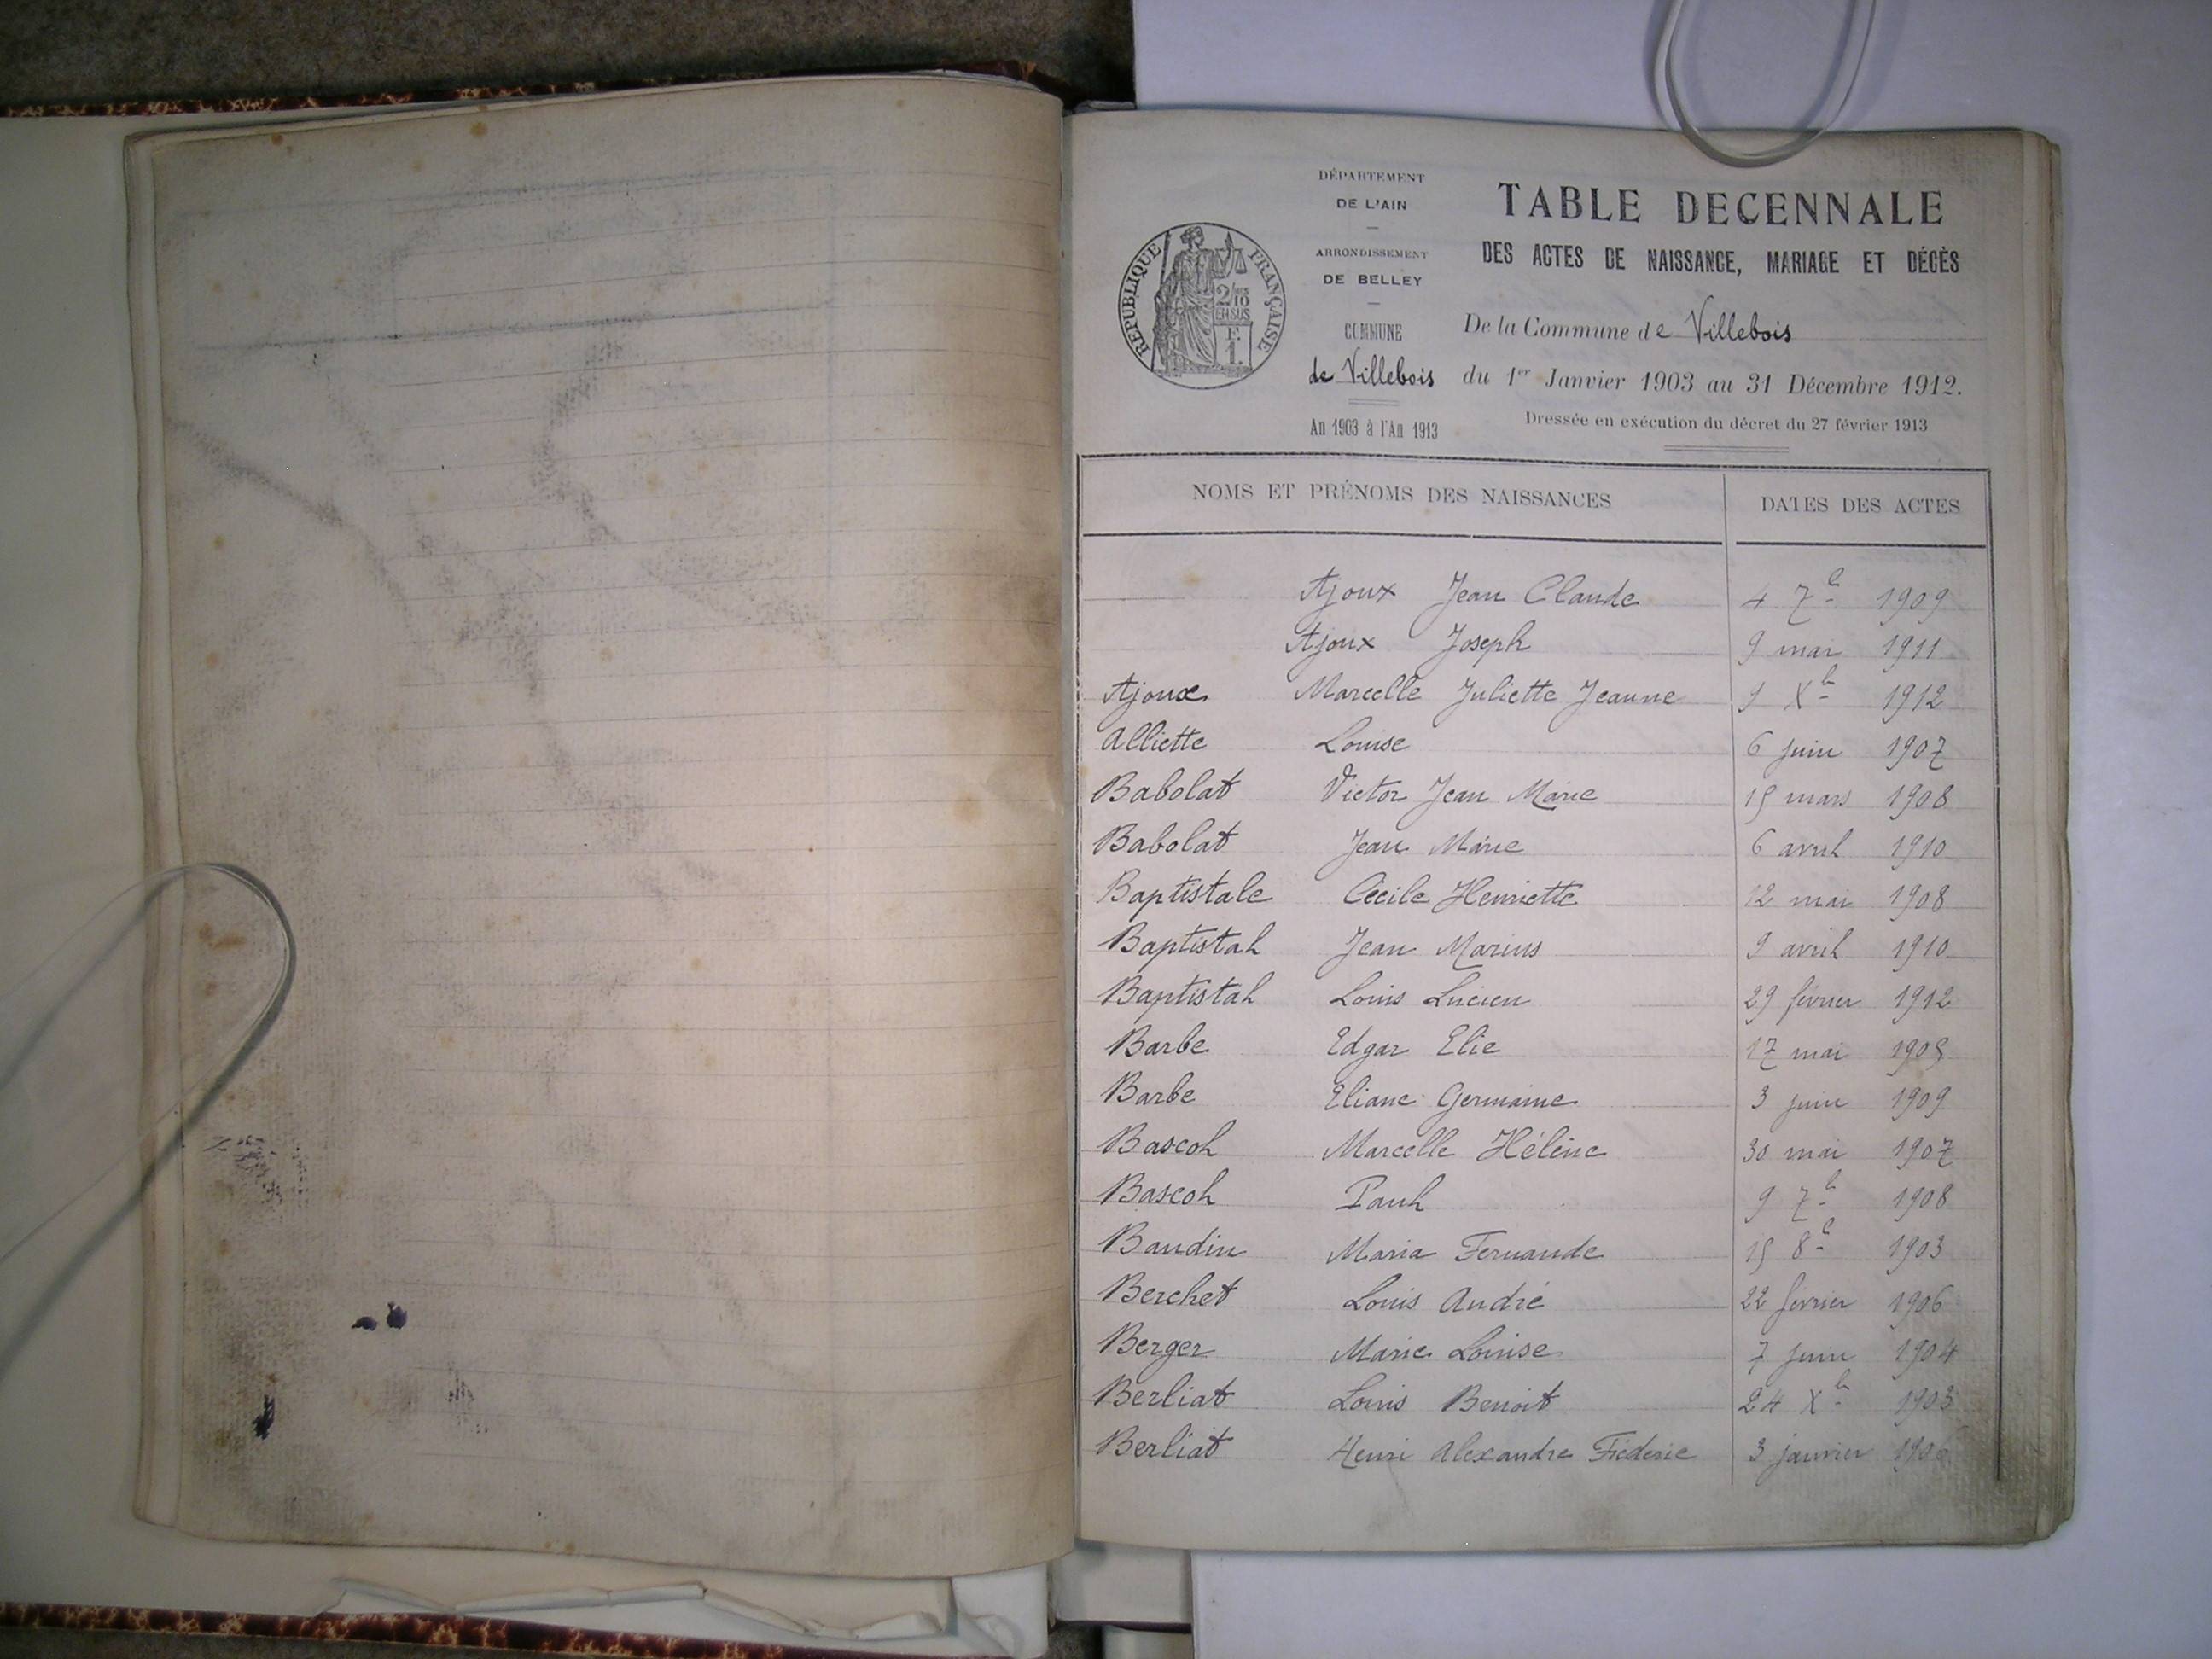 DÉPARTEMENT
DE L'AIN
ARRONDISSEMENT
DE BELLEY
COMMUNE
de Villebois
An 1903 à l'An 1913
RÉPUBLIQUE FRANÇAISE
2/10
EN SUS
F.
1.
TABLE DECENNALE
DES ACTES DE NAISSANCE, MARIAGE ET DÉCÈS
De la Commune de Villebois
du 1er Janvier 1903 au 31 Décembre 1912.
Dressée en exécution du décret du 27 février 1913
NOMS ET PRÉNOMS DES NAISSANCES DATES DES ACTES
Ajoux Jean Claude 4 7b 1909
Ajoux Joseph 9 mai 1911
Ajoux Marcelle Juliette Jeanne 1 Xb 1912
Alliette Louise 6 juin 1907
Babolat Victor Jean Marie 15 mars 1908
Babolat Jean Marie 6 avril 1910
Baptistale Cécile Henriette 12 mai 1908
Baptistal Jean Marius 9 avril 1910
Baptistal Louis Lucien 29 février 1912
Barbe Edgar Elie 17 mai
Barbe Eliane Germaine 3 juin 1909
Bascol Marcelle Hélène 30 mai 1907
Bascol Paul 9 7b 1908
Baudin Maria Fernande 15 8b 1903
Berchet Louis André 22 février 1906
Berger Marie Louise 7 juin 1904
Berliat Louis Benoit 24 Xb 1903
Berliat Henri Alexandre Fréderic 3 janvier